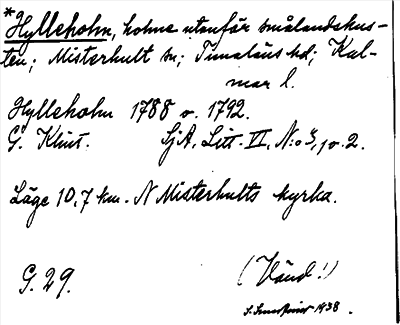 *Hylleholm, holme utanför smålandskus-
ten; Misterhult sn; Tunaläns hd; Kal-
mar l.
Hylleholm 1788 o. 1792.
G. Klint. SjA, Litt. VI, N:o 3, 1 o. 2.
Läge 10,7 km. N Misterhults kyrka.
G. 29. (Vänd!)
1938.